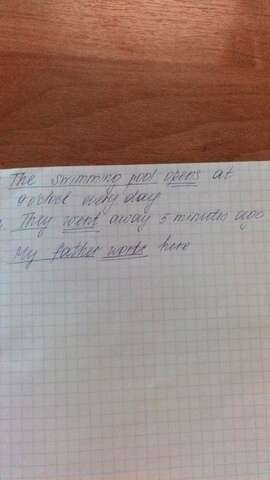 The swimming pool opens at
9 o'clock every day
They went away 5 minutes ago
My father works here